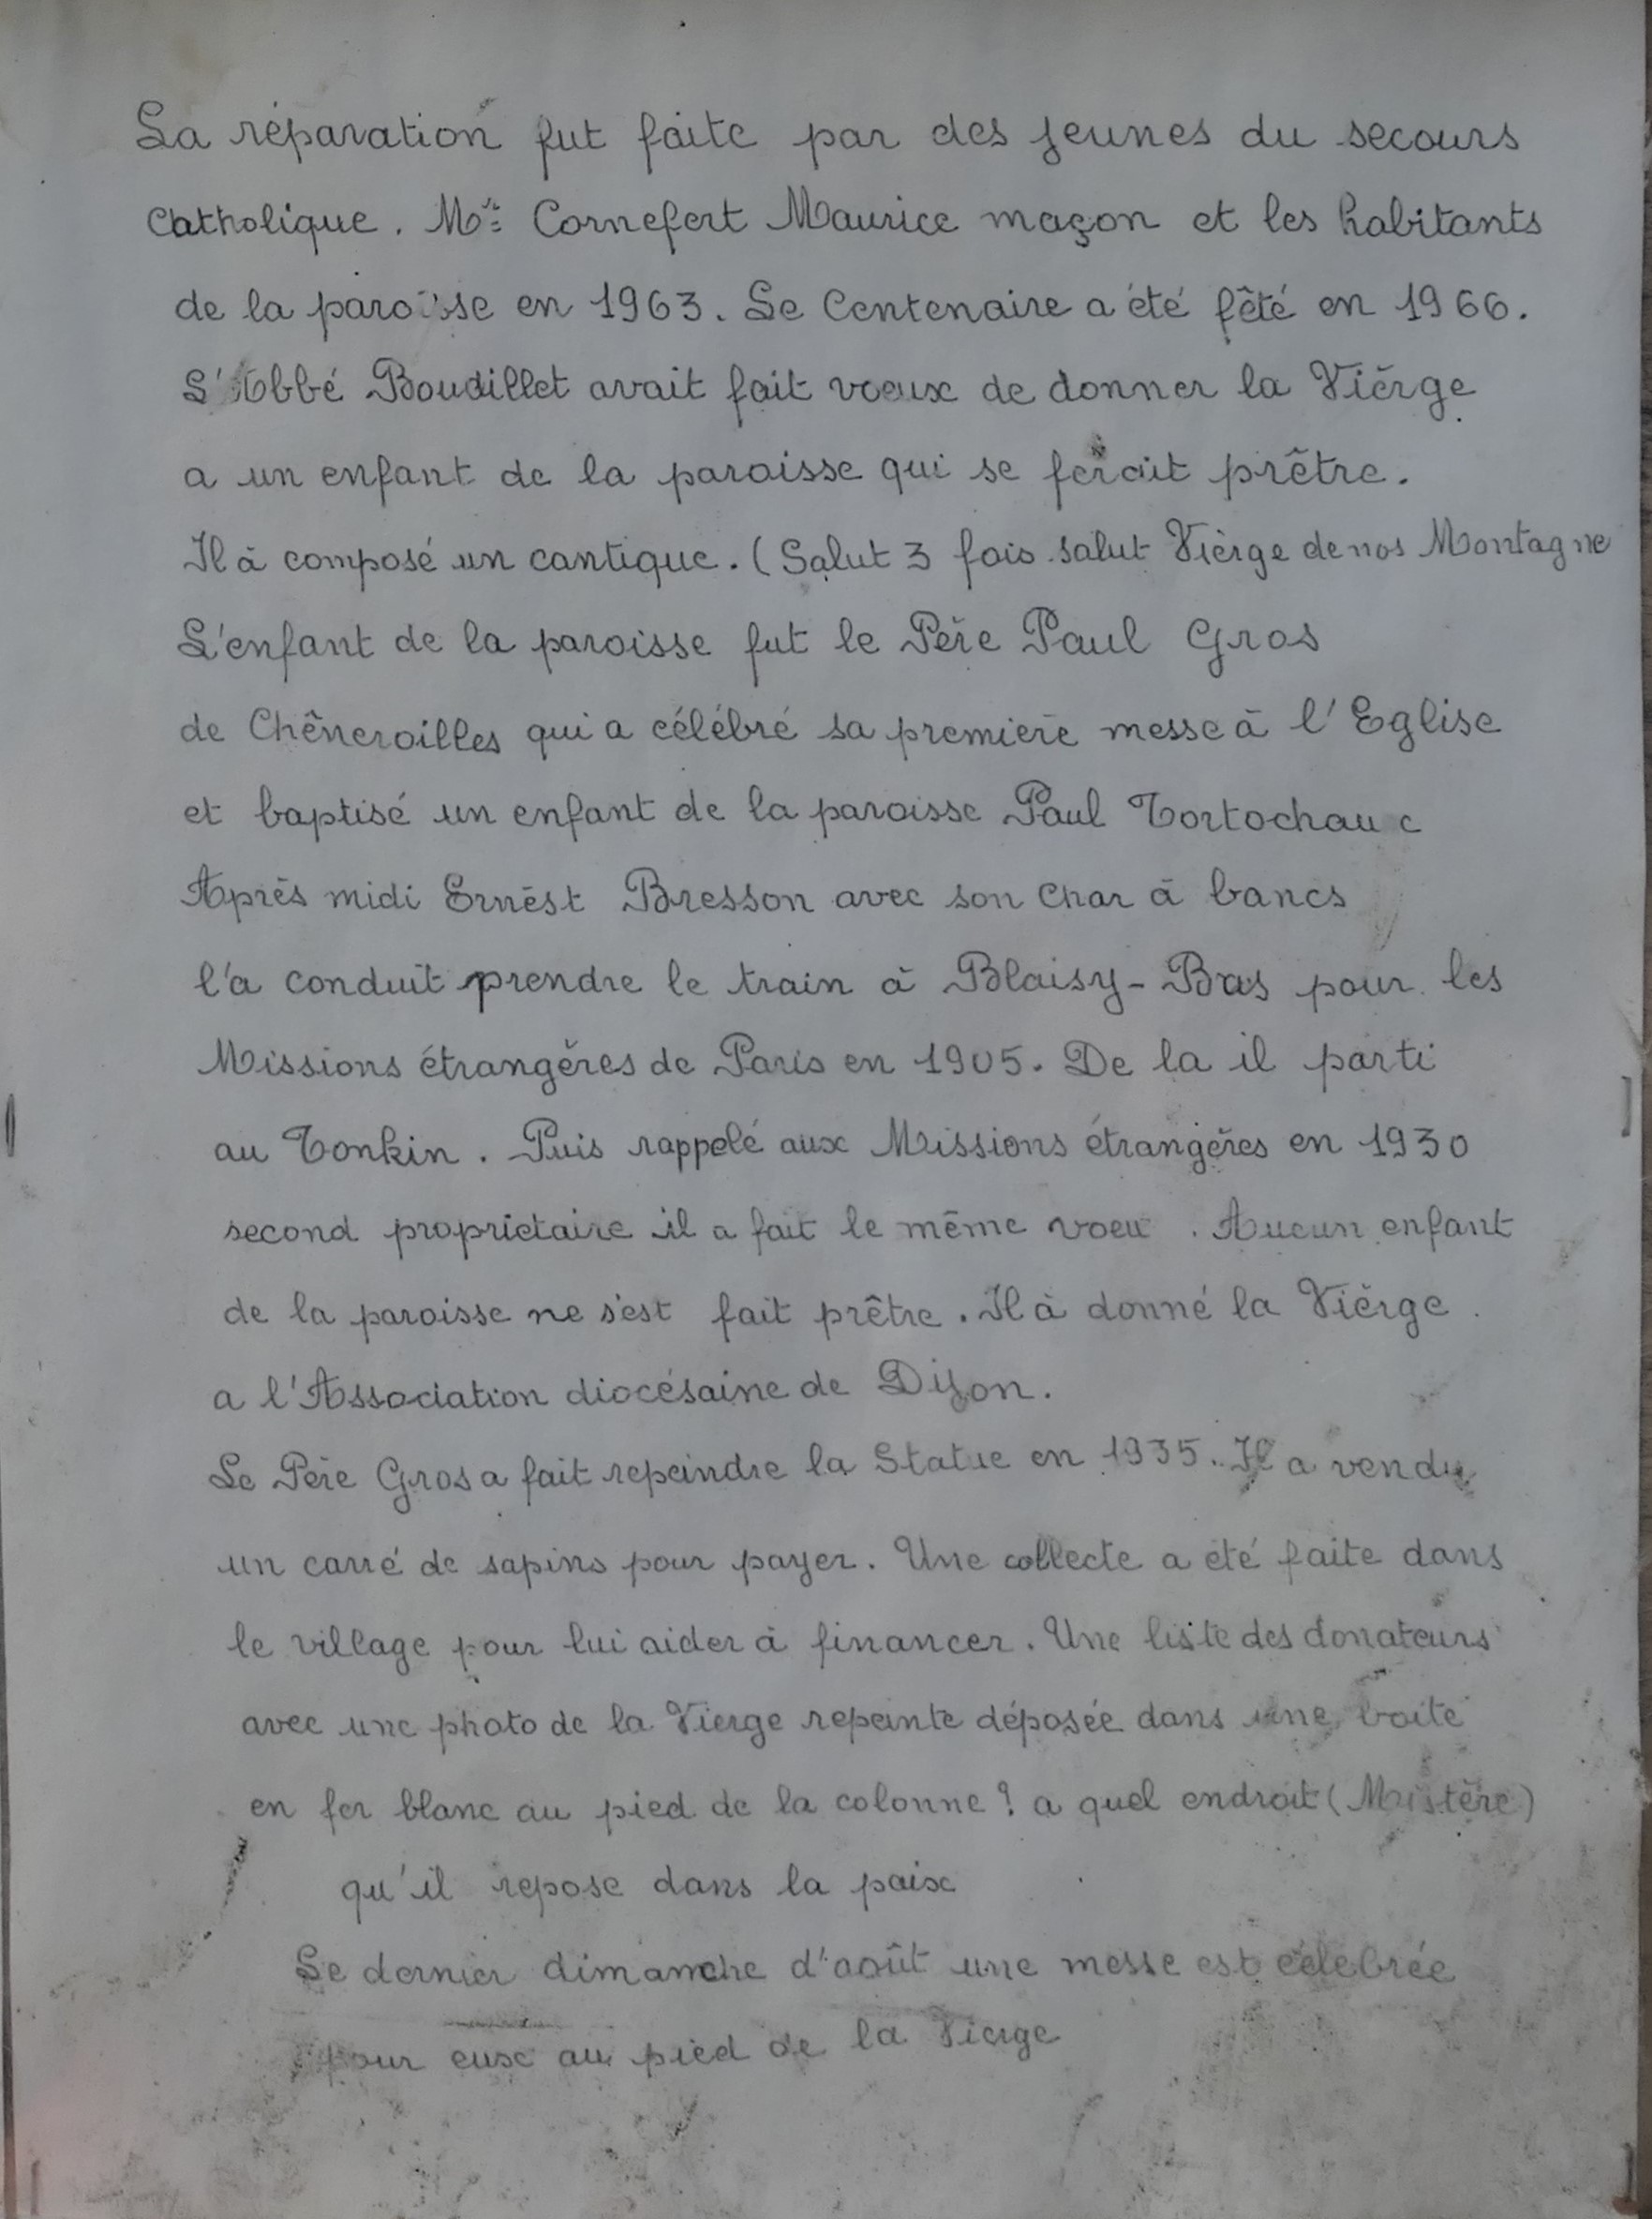 La réparation fut faite par des jeunes du secours
Catholique. Mr: Cornefert Maurice maçon et les habitants
de la paroisse en 1963. Le Centenaire a été fêté en 1966.
L'Abbé Boudillet avait fait voeux de donner la Vièrge
a un enfant de la paroisse qui se ferait prêtre.
Il à composé un cantique. (Salut 3 fois salut Vièrge de nos Montagne
L'enfant de la paroisse fut le Père Paul Gros
de Chêneroilles qui a célébré sa première messe à l'Eglise
et baptisé un enfant de la paroisse Paul Tortochau c
Après midi Ernèst Bresson avec son Char à bancs
l'a conduit prendre le train à Blaisy-Bas pour les
Missions étrangères de Paris en 1905. De la il parti
au Tonkin. Puis rappelé aux Missions étrangères en 1930
second proprietaire il a fait le même voeu. Aucun enfant
de la paroisse ne s'est fait prêtre. Il à donné la Vièrge.
a l'Association diocésaine de Dijon.
Le Père Gros a fait repeindre la Statue en 1935. Il a vendu
un carré de sapins pour payer. Une collecte a été faite dans
le village pour lui aider à financer. Une liste des donateurs
avec une photo de la Vierge repeinte déposée dans une boite
en fer blanc au pied de la colonne? a quel endroit (Mistère)
qu'il repose dans la paix
Le dernier dimanche d'août une messe est célebrée
pour eux au pied de la Vierge